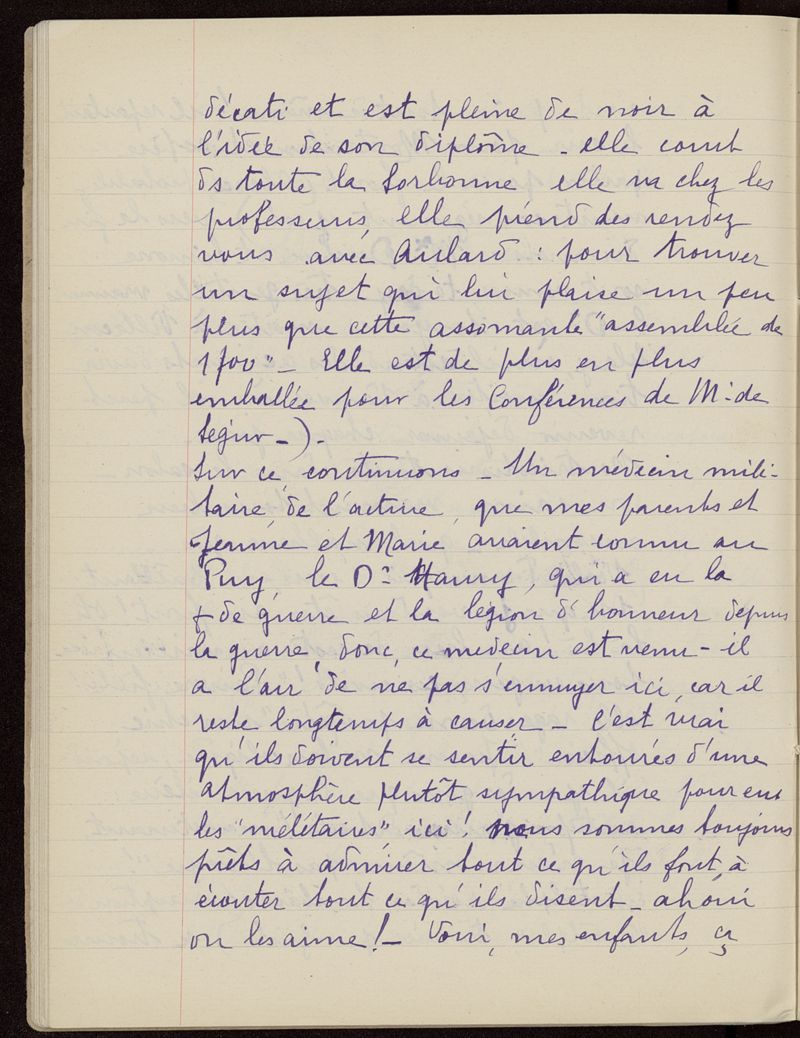 décati et est pleine de noir à
l'idée de son diplôme - elle court
ds toute la Sorbonne elle va chez les
professeurs, elle prend des rendez
vous avec Aulard : pour trouver
un sujet qui lui plaise un peu
plus que cette assomante "assemblée de
1700" - Elle est de plus en plus
emballée pour les Conférences de Mr de
Ségur -) -
Sur ce, continuons - Un médecin mili-
taire, de l'active, que mes parents et
Jeanne et Marie avaient connu au
Puy, le Dr Haury, qui a eu la
+ de guerre et la légion d'honneur depuis
la guerre, donc, ce medecin est venu - il
a l'air de ne pas s'ennuyer ici, car il
reste longtemps à causer - C'est vrai
qu'ils doivent se sentir entourés d'une
atmosphère plutôt sympathique pour eux
les "mélétaires", ici ! nous sommes toujours
prêts à admirer tout ce qu'ils font, à
écouter tout ce qu'ils disent - ah oui
on les aime ! - Voui, mes enfants, ça